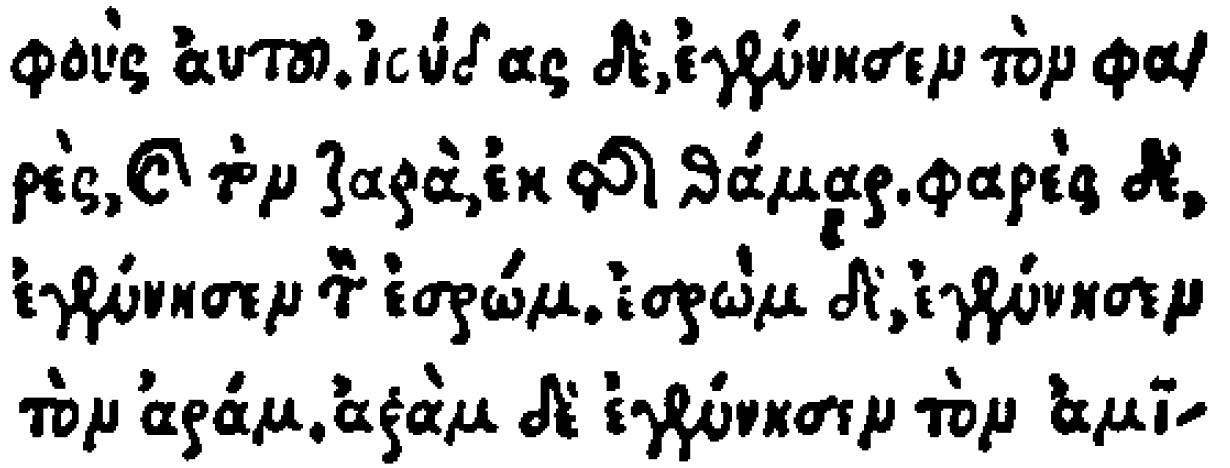 φοὺς ἀυτοῦ. ἰούδας δὲ, ἐγέννησεν τὸν φα/
ρὲς, καὶ τὸν ζαρὰ, ἐκ τῆς θάμαρ. φαρὲς δὲ,
ἐγέννησεν τὸν ἐσρώμ. ἐσρὼμ δὲ, ἐγέννησεν
τὸν ἀράμ. ἀρὰμ δὲ ἐγέννησεν τὸν ἀμϊ-